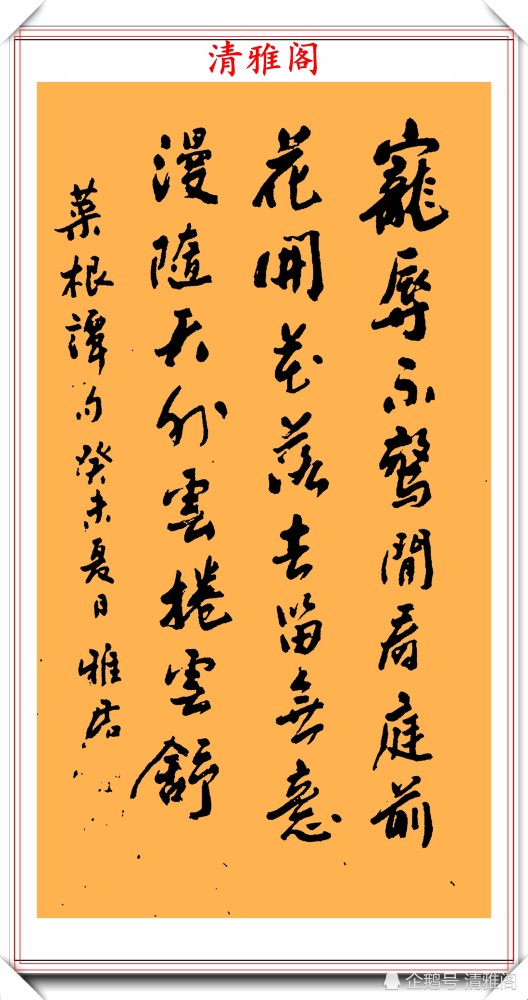 清雅阁
寵辱不驚閒看庭前
花開花落去留無意
漫隨天外雲捲雲舒
菜根譚句癸未夏日雅居
企鹅号 清雅阁